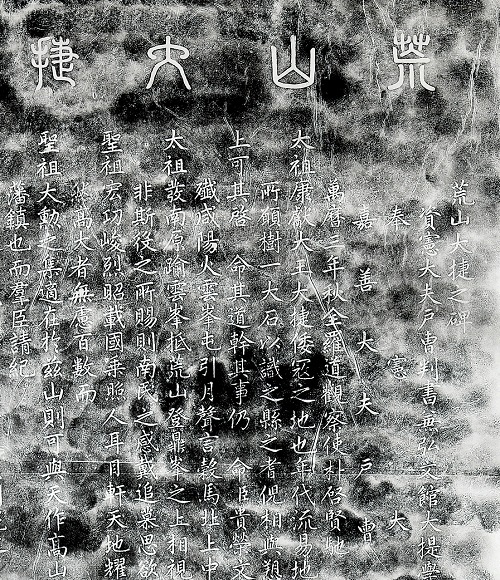 荒山大捷
荒山大捷之碑
資憲大夫戶曹判書兼弘文館大提學
奉憲大
嘉善大夫戶曹
萬曆三年秋全羅道觀察使朴啓賢馳
太祖康獻大王大捷倭寇之地也年代流易地
所願樹一大石以識之縣之耆倪相與懇
上可其啓 命其道幹其事仍 命臣貴榮文
殲咸陽火雲峯屯引月聲言穀馬上中
太祖發南原踰雲峯抵荒山登鼎峯之上相視
非斯役之所賜則南民之感戴追慕思欲
聖祖宏功峻烈昭載國乘昭人耳目軒天地耀
然高大者無慮百數而
聖祖大勳之集適在於玆山則可與天作高山
藩鎭也而羣臣請紀